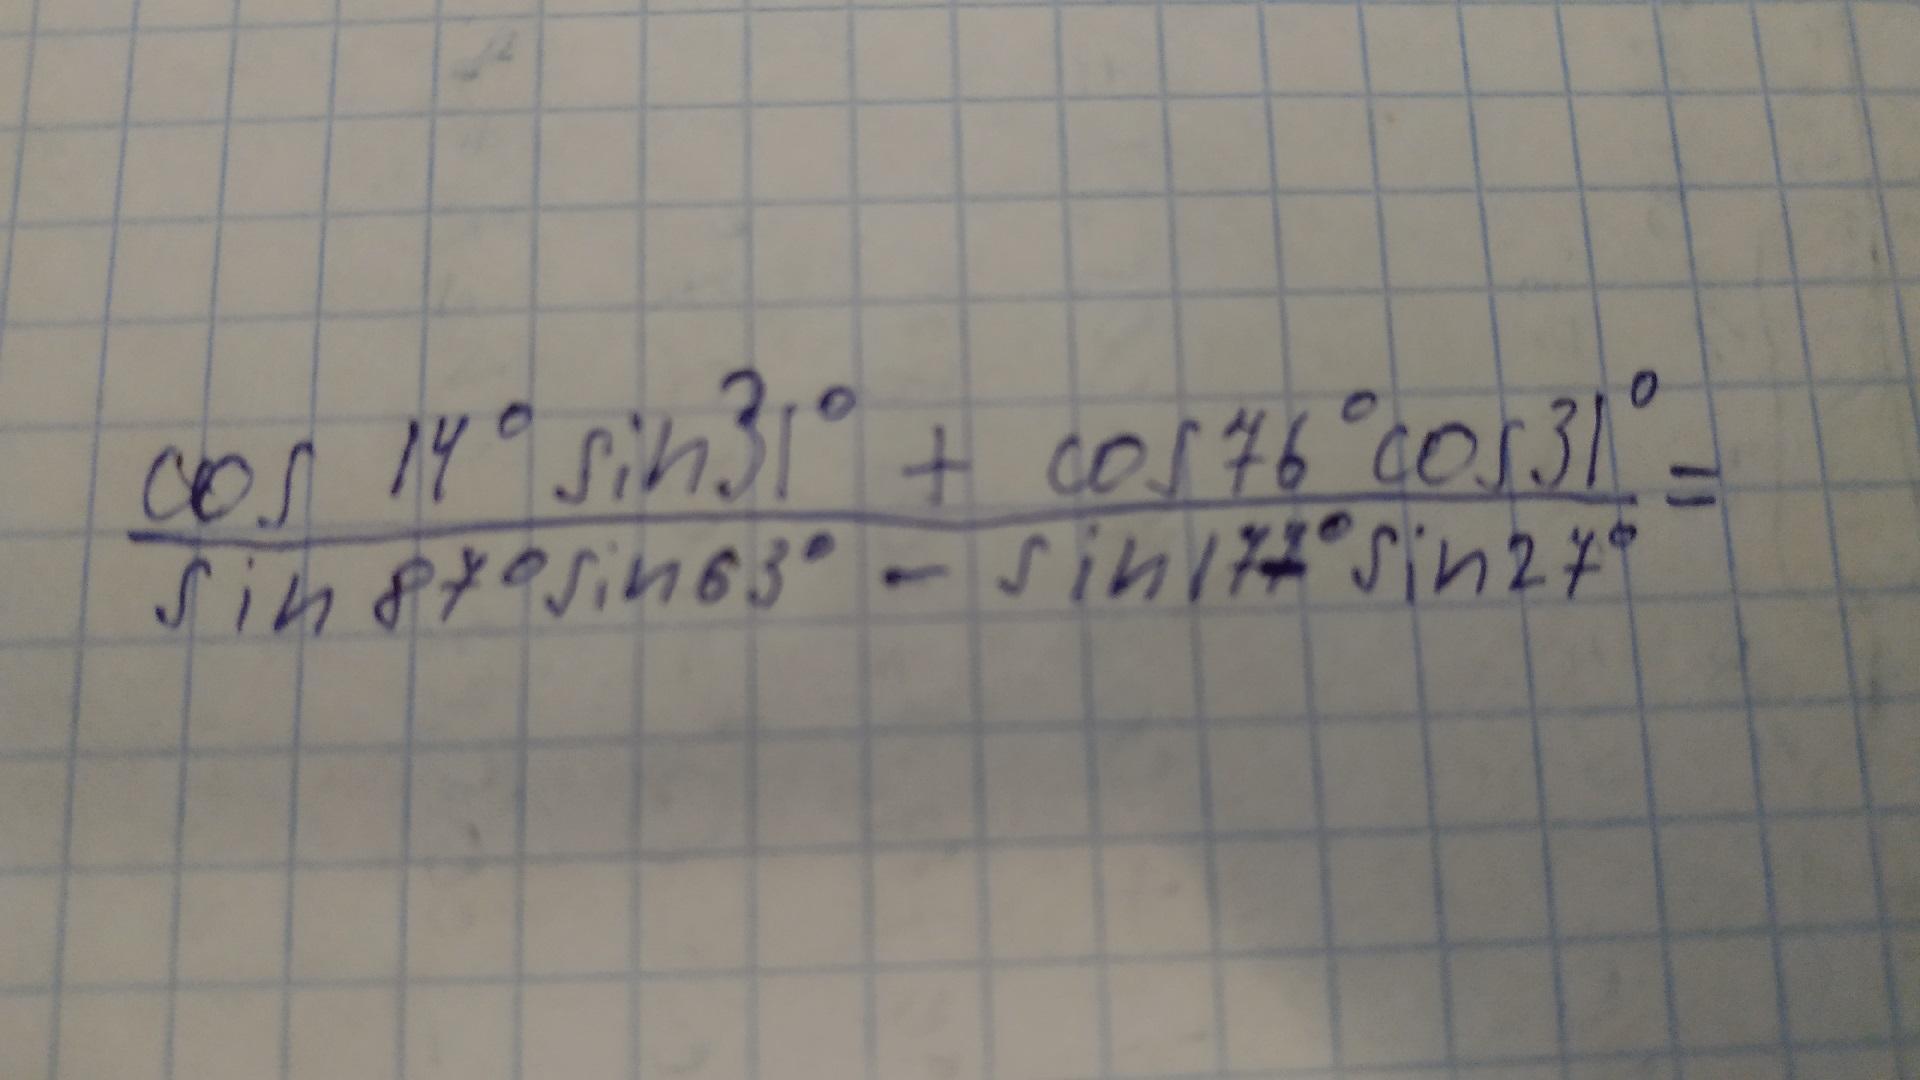 cos 14° sin31° + cos76° cos31° =
sin 87° sin63° - sin177° sin27°